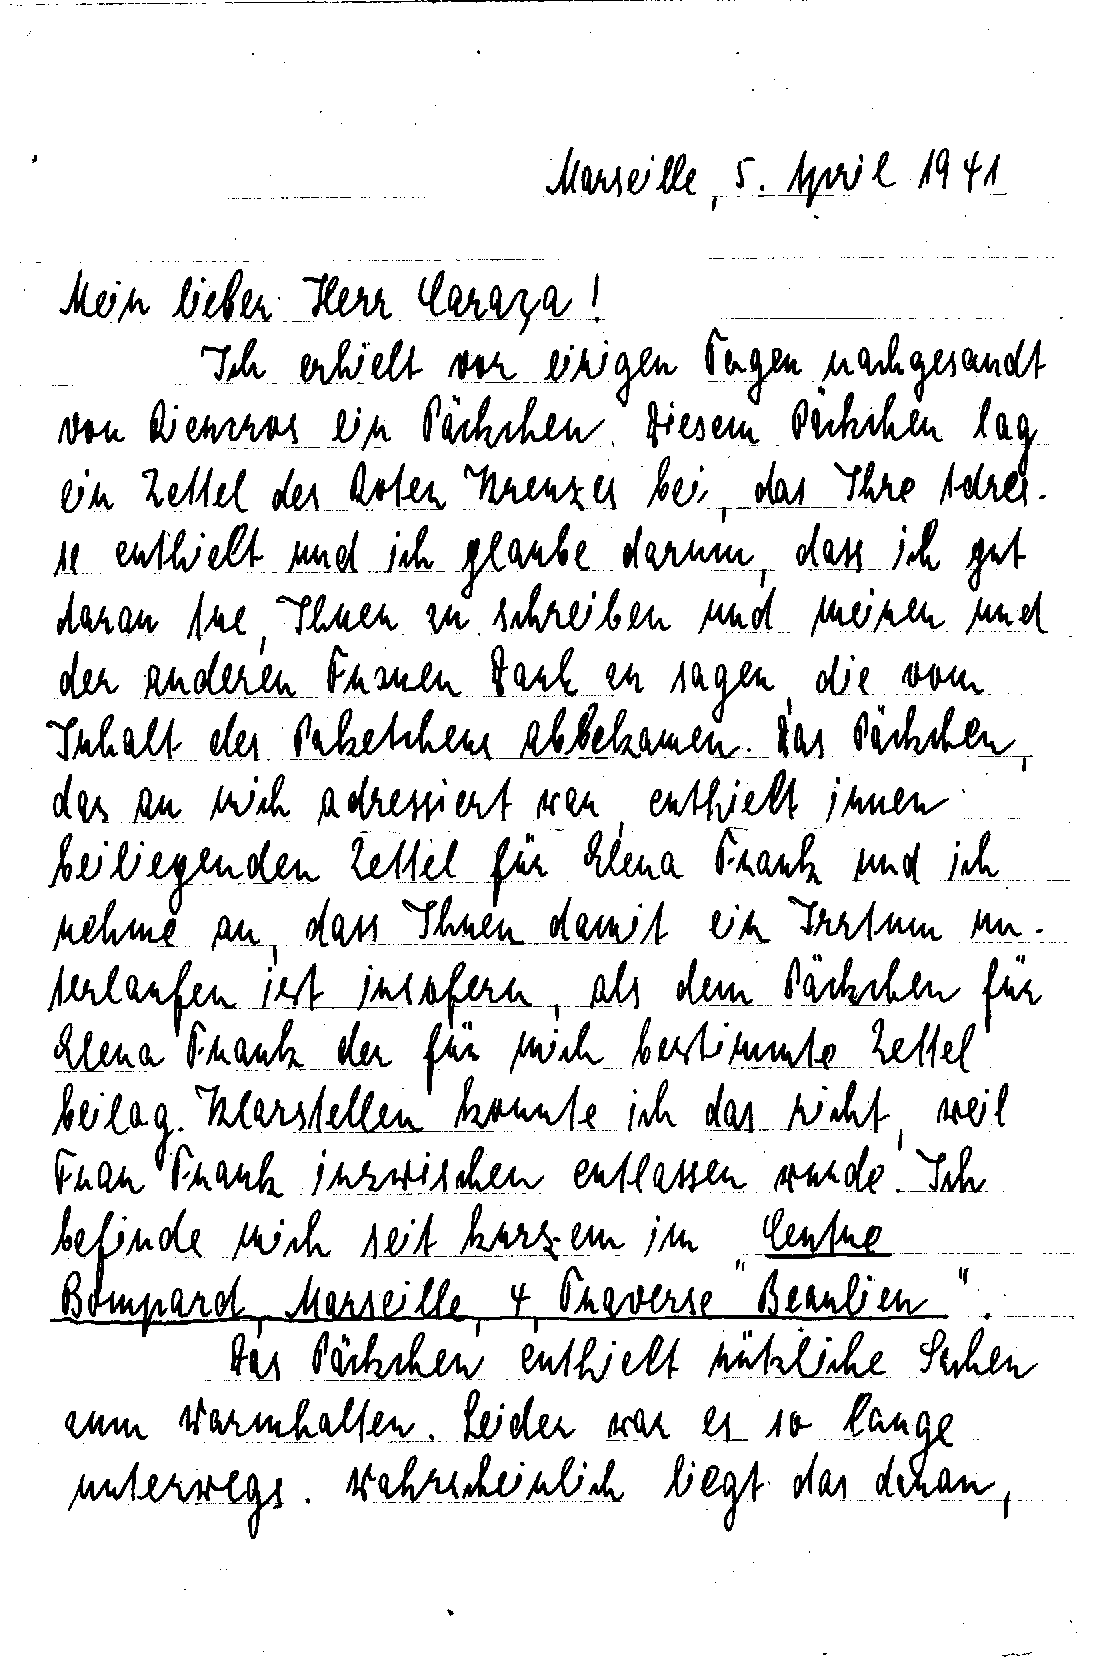 Marseille, 5. April 1941
Mein lieber Herr Caraza!
Ich erhielt vor einigen Tagen nachgesandt
von Rieucros ein Päckchen. Diesem Päckchen lag
ein Zettel des Roten Kreuzes bei, das Ihre Adres-
se enthielt und ich glaube darum, dass ich gut
daran tue, Ihnen zu schreiben und meinen und
der anderen Frauen Dank zu sagen, die vom
Inhalt des Paketchens abbekamen. Das Päckchen,
das an mich adressiert war, enthielt innen
beiliegenden Zettel für Elena Frank und ich
nehme an, dass Ihnen damit ein Irrtum un-
terlaufen ist insofern, als dem Päckchen für
Elena Frank der für mich bestimmte Zettel
beilag. Klarstellen konnte ich das nicht, weil
Frau Frank inzwischen entlassen wurde. Ich
befinde mich seit kurzem im "Centre
Bompard, Marseille, 4, Traverse "Beaulieu".
Das Päckchen enthielt nützliche Sachen
zum Warmhalten. Leider war es so lange
unterwegs. Wahrscheinlich liegt das daran,